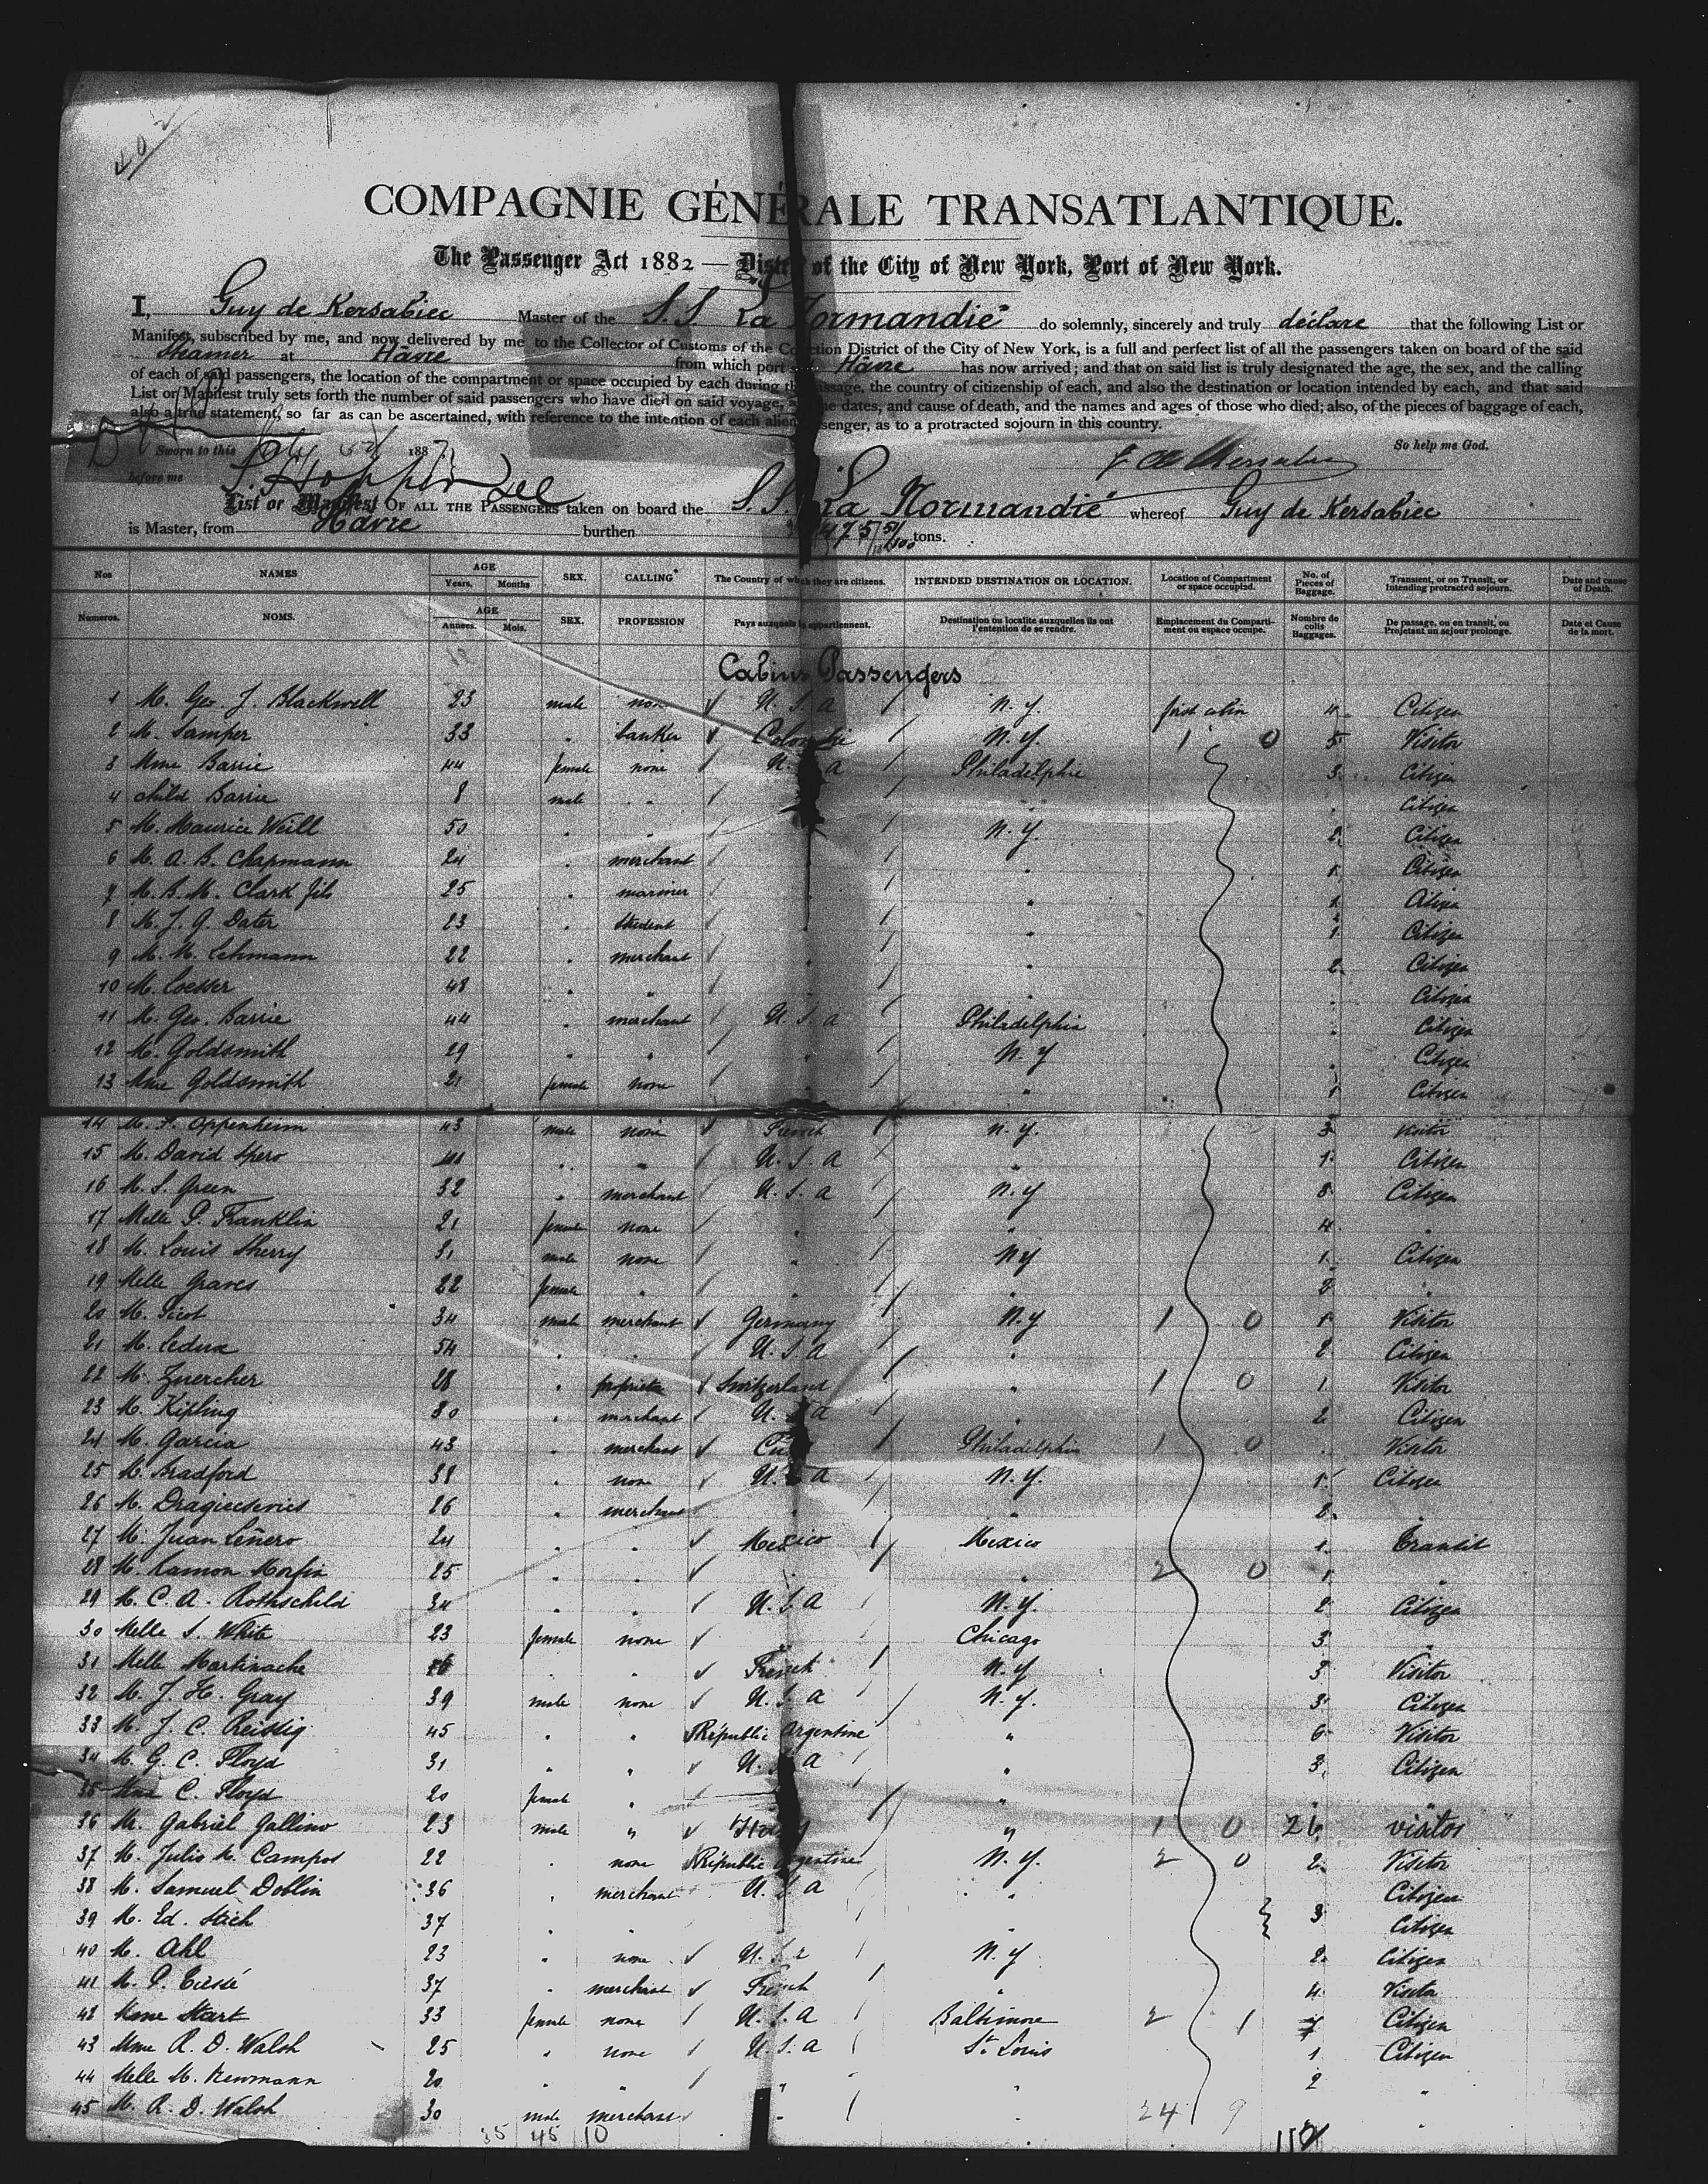 402
COMPAGNIE GÉNÉRALE TRANSATLANTIQUE.
The Passenger Act 1882 — District of the City of New York, Port of New York.
I, Guy de Kersabiec Master of the S.S. La Normandie do solemnly, sincerely and truly déclare that the following List or
Manifest, subscribed by me, and now delivered by me to the Collector of Customs of the Collection District of the City of New York, is a full and perfect list of all the passengers taken on board of the said
Steamer at Hâvre from which port Hâvre has now arrived; and that on said list is truly designated the age, the sex, and the calling
of each of said passengers, the location of the compartment or space occupied by each during the passage, the country of citizenship of each, and also the destination or location intended by each, and that said
List or Manifest truly sets forth the number of said passengers who have died on said voyage, the dates, and cause of death, and the names and ages of those who died; also, of the pieces of baggage of each,
also a true statement, so far as can be ascertained, with reference to the intention of each alien passenger, as to a protracted sojourn in this country.
Sworn to this 1887 So help me God.
before me
List or Manifest OF ALL THE PASSENGERS taken on board the S.S. La Normandie whereof Guy de Kersabiec
is Master, from Hâvre burthen tons.
Nos NAMES AGE Years. Months SEX. CALLING The Country of which they are citizens. INTENDED DESTINATION OR LOCATION. Location of Compartment or space occupied. No. of Pieces of Baggage. Transient, or on Transit, or Intending protracted sojourn. Date and cause of Death.
Numeros. NOMS. AGE Années. Mois. SEX. PROFESSION Pays auxquels ils appartiennent. Destination ou localite auxquelles ils ont l'entention de se rendre. Emplacement du Compartiment ou espace occupe. Nombre de colis Baggages. De passage, ou en transit, ou Projetant un sejour prolonge. Date et Cause de la mort.
Cabins Passengers
1 M. Geo. J. Blackwell 23 male none U.S.a N.Y. first cabin 4 Citizen
2 M. Samper 33 " banker Colombie N.Y. 1 0 5 Visitor
3 Mme Barrie 44 female none U.S.a Philadelphie 3 Citizen
4 child Barrie 8 male " " " Citizen
5 M. Maurice Weill 50 " " N.Y. 2 Citizen
6 M. A. B. Chapmann 24 " merchant " 1 Citizen
7 M. B. M. Clark fils 25 " mariner " 1 Citizen
8 M. J. G. Dater 23 " Student " 1 Citizen
9 M. M. Lehmann 22 " merchant " " 2 Citizen
10 M. Loesser 48 " " " Citizen
11 M. Geo. Barrie 44 " merchant U.S.a Philadelphia " Citizen
12 M. Goldsmith 29 " " " N.Y " Citizen
13 Mme Goldsmith 21 female none " " 1 Citizen
14 M. F. Oppenheim 43 male none French N.Y. 3 Visitor
15 M. David Spero " " U.S.a " 1 Citizen
16 M. S. Green 32 " merchant U.S.a N.Y 8 Citizen
17 Melle P. Franklin 21 female none " " 4 "
18 M. Louis Sherry 31 male none " N.Y 1 Citizen
19 Melle Graves 22 female " " " 2 "
20 M. Picot 34 male merchant Germany N.Y 1 0 1 Visitor
21 M. Leduc 54 " " U.S.a " 2 Citizen
22 M. Zuercher 28 " proprietor Switzerland " 1 0 1 Visitor
23 M. Kipling 30 " merchant U.S.a " 2 Citizen
24 M. Garcia 43 " merchant Cuba Philadelphia 1 0 " Visitor
25 M. Bradford 38 " none U.S.a N.Y. 1 Citizen
26 M. 26 " merchant " " 2 "
27 M. Juan Leñero 24 " " Mexico Mexico 1 Transit
28 M. Ramon Morfin 25 " " " " 2 0 1 "
29 M. C. A. Rothschild 34 " " U.S.a N.Y. 2 Citizen
30 Melle S. White 23 female none " Chicago 3 "
31 Melle Martinache " " French N.Y 3 Visitor
32 M. J. H. Gray 39 male none U.S.a N.Y. 3 Citizen
33 M. J. C. Reissig 45 " " Républic Argentine " 6 Visitor
34 M. G. C. Floyd 31 " " U.S.a " 3 Citizen
35 Mme C. Floyd 20 female " " " "
36 M. Gabriel Gallino 23 male " Italy " 1 0 26 visitor
37 M. Julio M. Campos 22 " none Républic Argentine N.Y. 2 0 2 Visitor
38 M. Samuel Doblin 36 " merchant U.S.a " Citizen
39 M. Ed. Stich 37 " " 3 Citizen
40 M. Ahl 23 " none U.S.a N.Y 2 Citizen
41 M. P. 37 " merchant French " 4 Visitor
42 Mme Start 33 female none U.S.a Baltimore 2 1 Citizen
43 Mme R. D. Walsh 25 " none U.S.a St. Louis 1 Citizen
44 Melle M. Newmann 20 " " " " 2 "
45 M. R. D. Walsh 30 male merchant " " 24 9 "
35 45 10 110